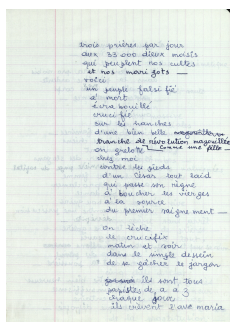 trois prières par jour
aux 33 000 dieux moisis
qui peuplent nos cultes
et nos marigots —
voici
un peuple falsifié
à mort
écrabouillé
crucifié
sur les hanches
d'une bien belle
tranche de révolution magouillée
on grelotte comme une fille —
chez moi
contre les pieds
d'un César tout laid
qui passe son règne
à boucher les vierges
à la source
du premier saignement —
on lèche
le crucifix
matin et soir
dans le simple dessein
de se gâcher le garçon
ils sont tous
papistes de a à z
chaque jour
ils crèvent l'ave maria